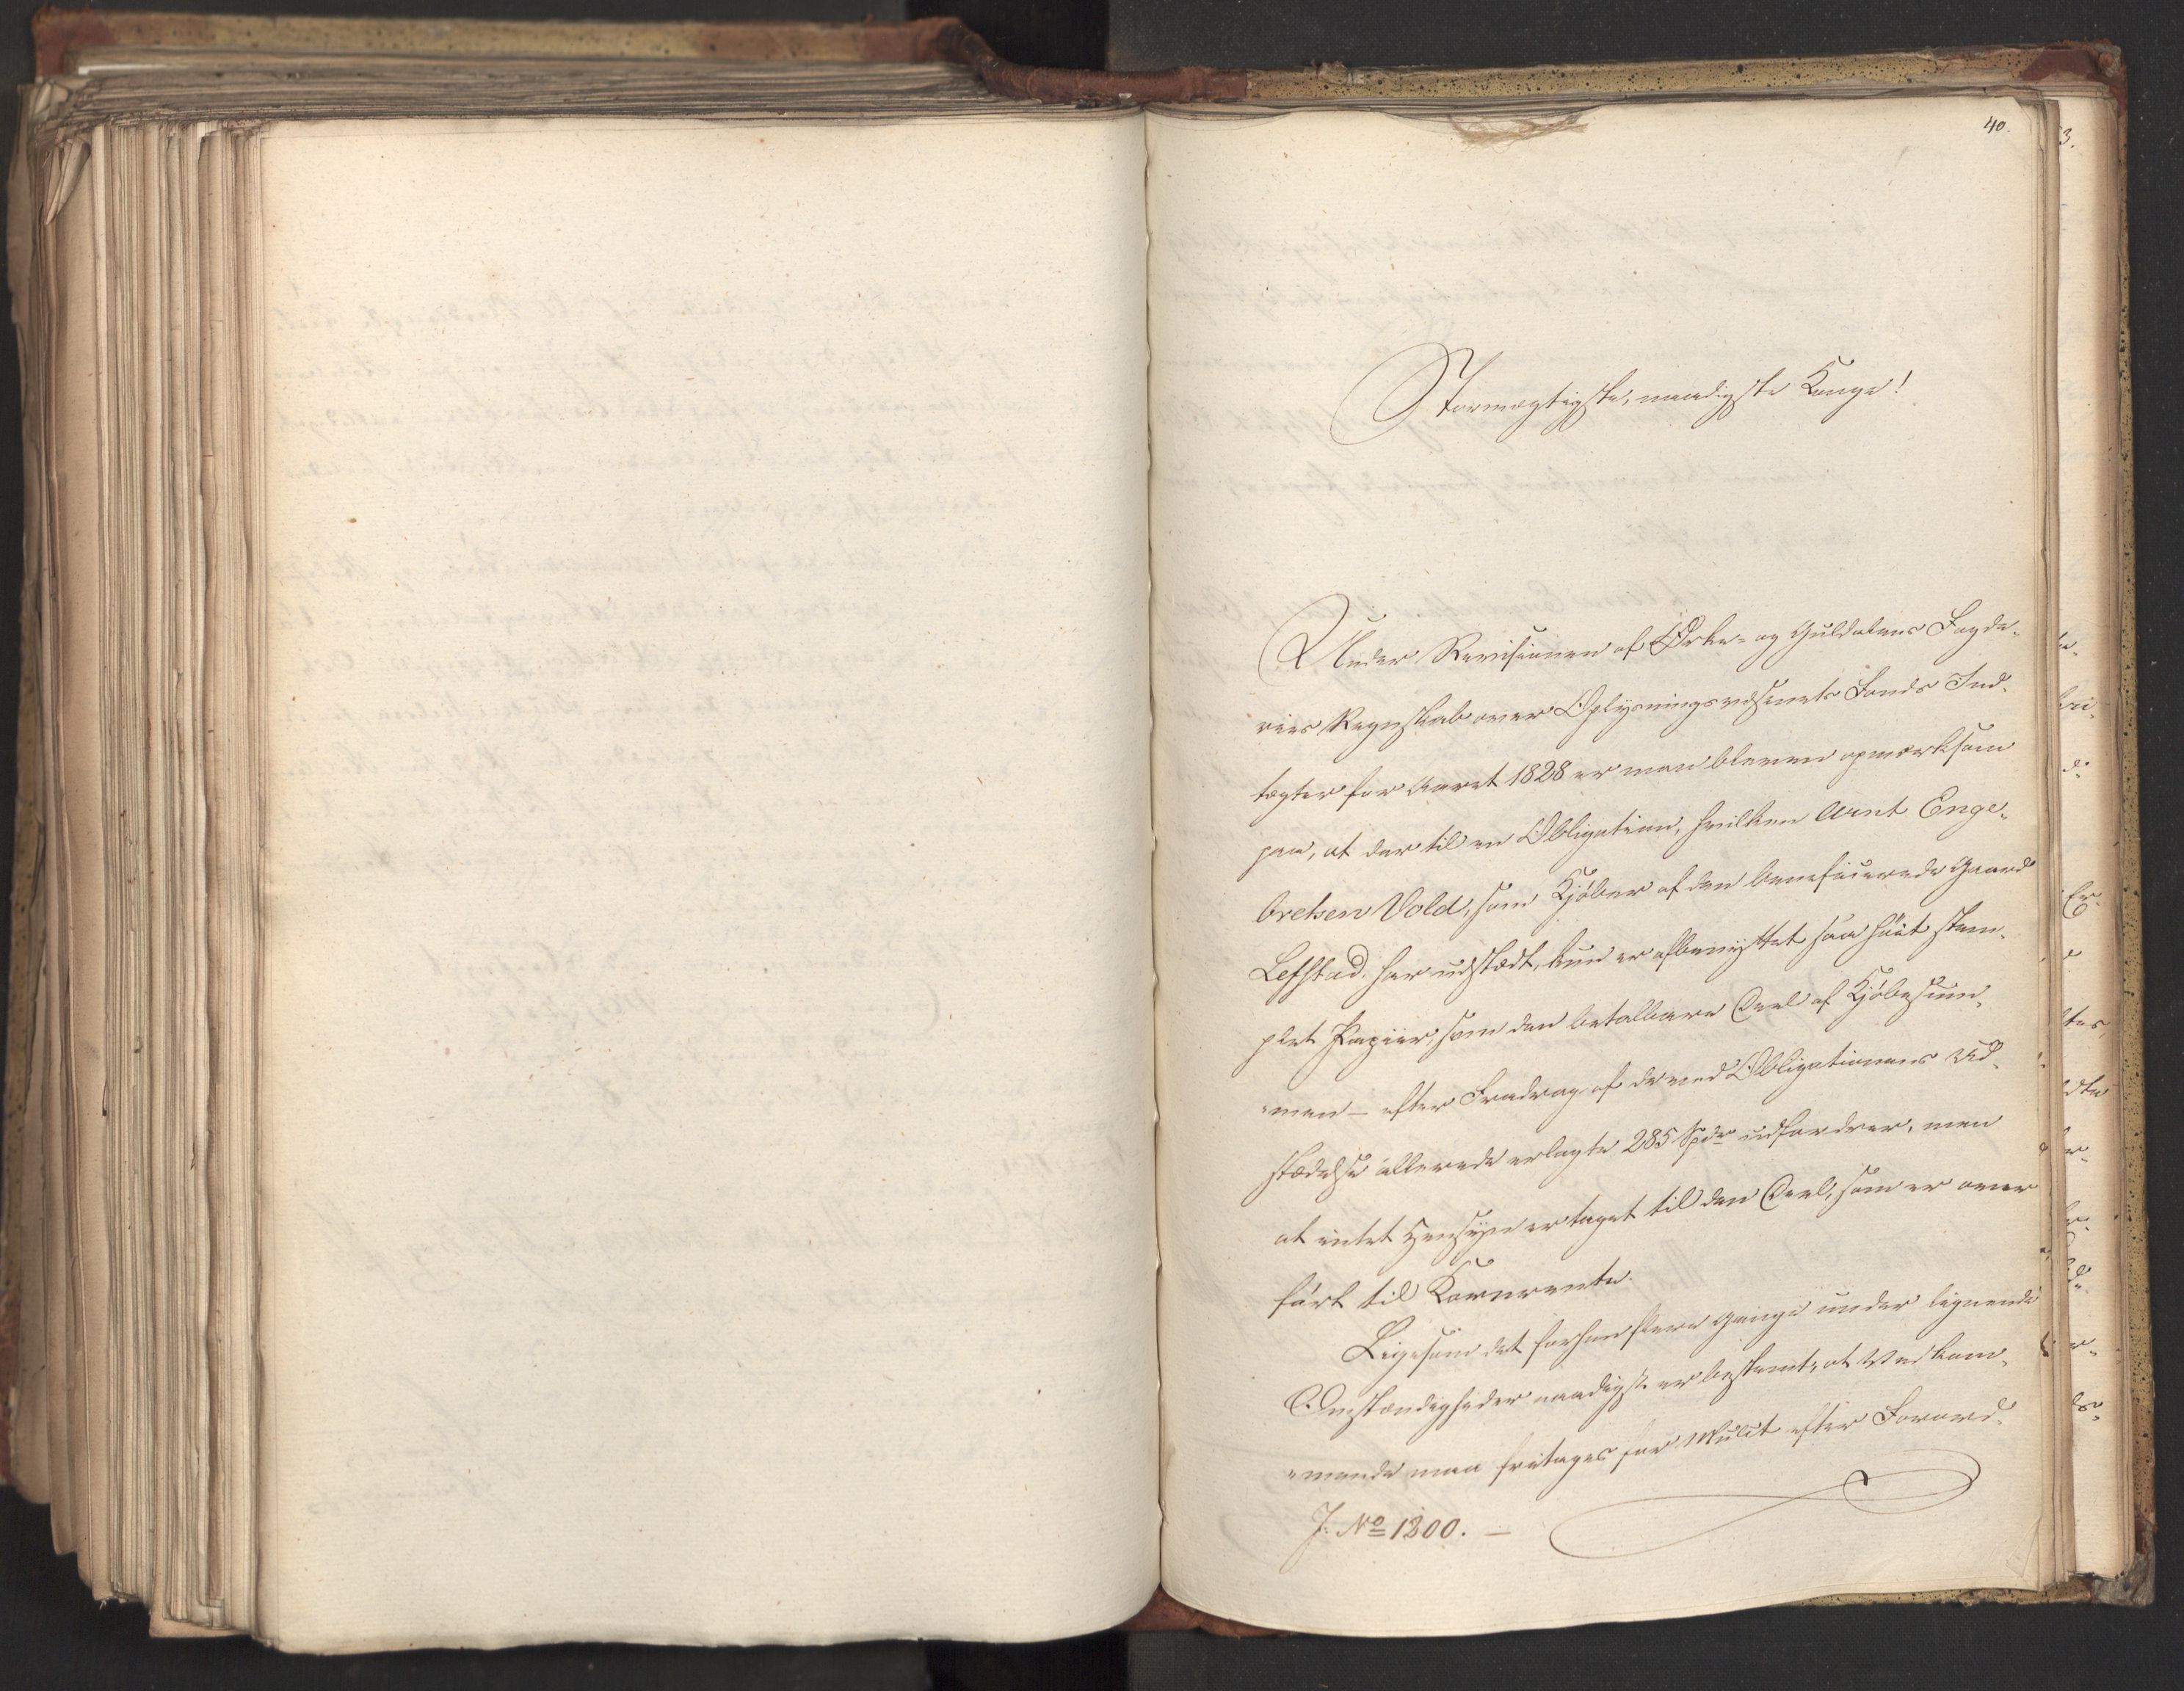 40.
Stormægtigste, naadigste Konge!
Under Revisionen af Orke- og Guldalens Fogde-
ries Regnskab over Oplysningsvæsenets Fonds Ind-
tægter for Aaret 1828 er man bleven opmærksom
paa, at der til en Obligation, hvilken Arnt Enge-
bretsen Vold, som Kjøber af den beneficerede Gaard
Lefstad, har udstædt, kun er afbenyttet saa høit stem-
plet Papiir, som den betalbare Deel af Kjøbesum-
men – efter Fradrag af de ved Obligationens Ud-
stædelse allerede erlagte 285 Spdr udfordrer, men
at intet Hensyn er taget til den Deel, som er over
ført til Kornrente.
Ligesom det forhen flere Gange under lignende
Omstændigheder naadigst er bestemt, at Vedkom-
mende maa fritages for Mulct efter Forord-
J. No 1300. –